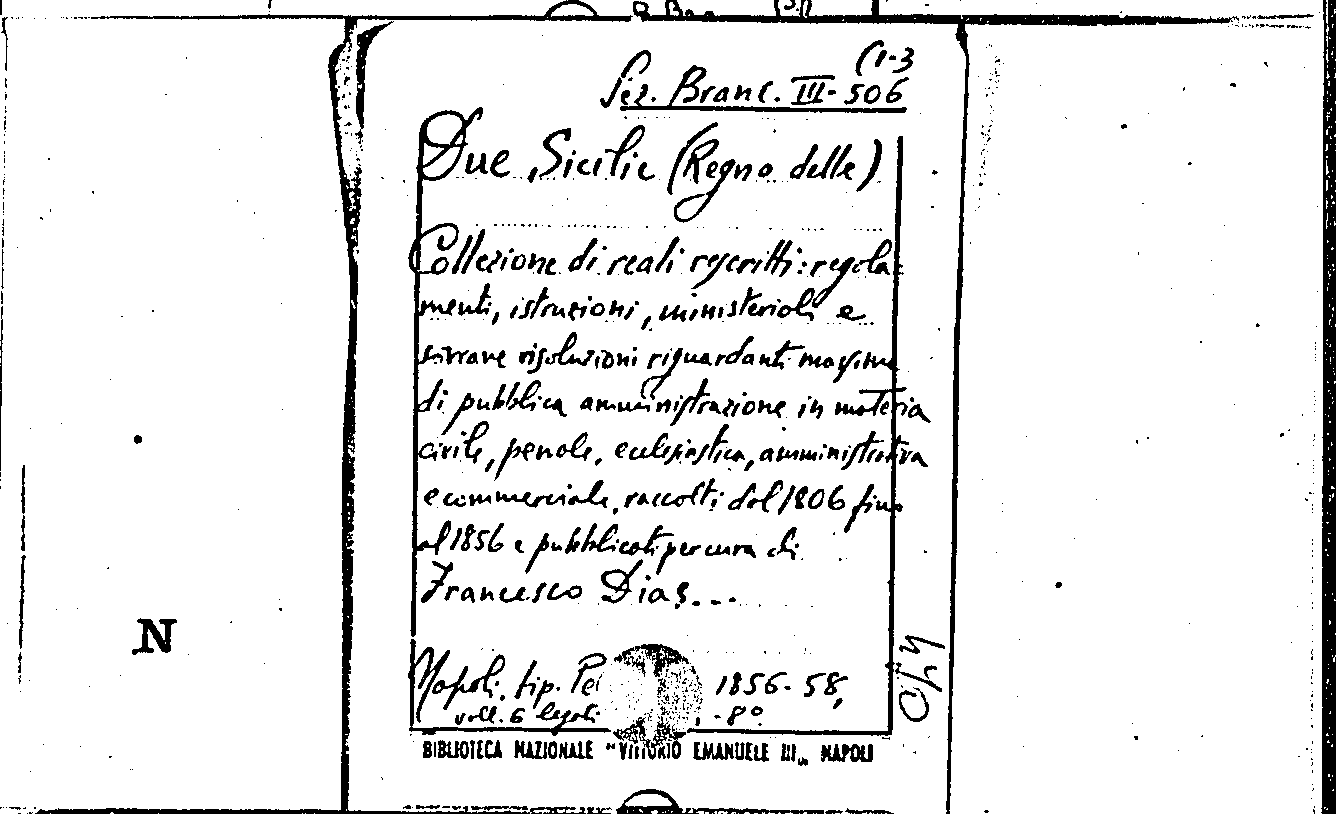 (1-3
Sez. Branc. III - 506
Due Sicilie (Regno delle)
Collezione di reali rescritti: regola-
menti, istruzioni, ministeriali e
sovrane risoluzioni riguardanti massime
di pubblica amministrazione in materia
civile, penale, ecclesiastica, amministrativa
e commerciale, raccolti dal 1806 fino
al 1856 e pubblicati per cura di
Francesco Dias...
Napoli, tip. 1856-58,
voll. 6 legati -8°
BIBLIOTECA NAZIONALE "VITTORIO EMANUELE III„ NAPOLI
N